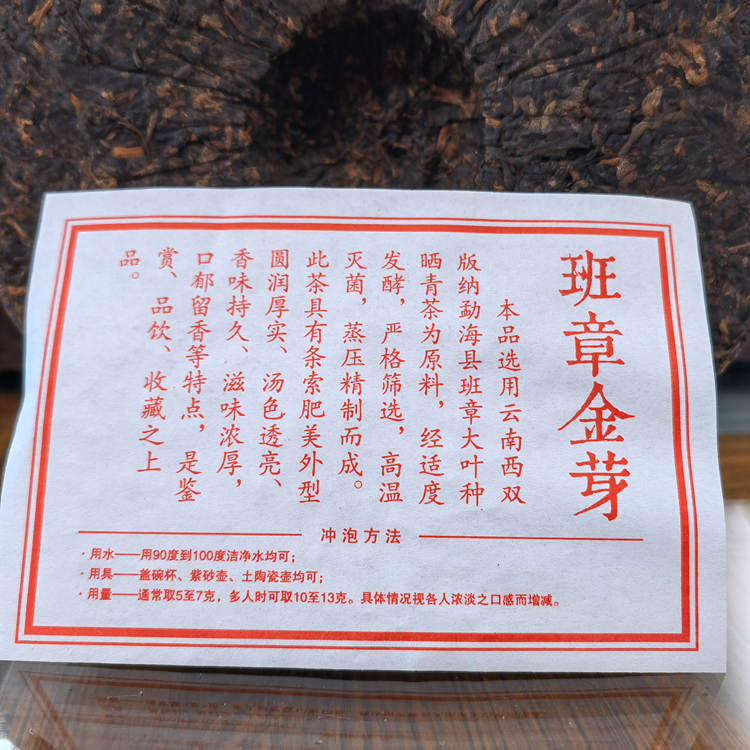 班章金芽
本品选用云南西双
版纳勐海县班章大叶种
晒青茶为原料，经适度
发酵，严格筛选，高温
灭菌，蒸压精制而成。
此茶具有条索肥美外型
圆润厚实、汤色透亮、
香味持久、滋味浓厚，
口郁留香等特点，是鉴
赏、品饮、收藏之上
品。
冲泡方法
·用水——用90度到100度洁净水均可；
·用具——盖碗杯、紫砂壶、土陶瓷壶均可；
·用量——通常取5至7克，多人时可取10至13克。具体情况视各人浓淡之口感而增减。